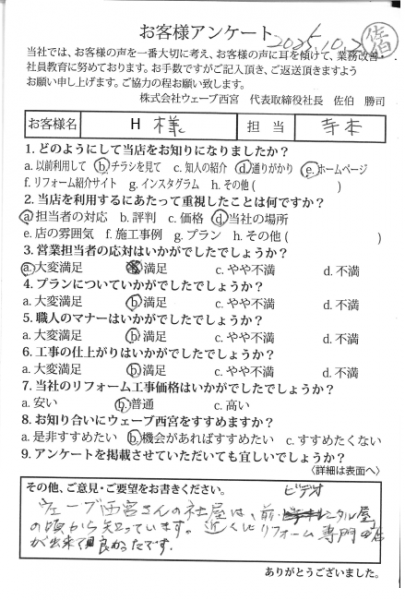 お客様アンケート 2025.10.2 佐伯
当社では、お客様の声を一番大切に考え、お客様の声に耳を傾けて、業務改善・
社員教育に努めております。お手数ですがご記入頂き、ご返送頂きますよう
お願い申し上げます。ご協力の程お願い致します。
株式会社ウェーブ西宮 代表取締役社長 佐伯 勝司
お客様名 H 様 担当 寺本
1. どのようにして当店をお知りになりましたか?
a. 以前利用して b. チラシを見て c. 知人の紹介 d. 通りがかり e. ホームページ
f. リフォーム紹介サイト g. インスタグラム h. その他( )
2. 当店を利用するにあたって重視したことは何ですか?
a. 担当者の対応 b. 評判 c. 価格 d. 当社の場所
e. 店の雰囲気 f. 施工事例 g. プラン h. その他( )
3. 営業担当者の応対はいかがでしたでしょうか?
a. 大変満足 b. 満足 c. やや不満 d. 不満
4. プランについていかがでしたでしょうか?
a. 大変満足 b. 満足 c. やや不満 d. 不満
5. 職人のマナーはいかがでしたでしょうか?
a. 大変満足 b. 満足 c. やや不満 d. 不満
6. 工事の仕上がりはいかがでしたでしょうか?
a. 大変満足 b. 満足 c. やや不満 d. 不満
7. 当社のリフォーム工事価格はいかがでしたでしょうか?
a. 安い b. 普通 c. 高い
8. お知り合いにウェーブ西宮をすすめますか?
a. 是非すすめたい b. 機会があればすすめたい c. すすめたくない
9. アンケートを掲載させていただいても宜しいでしょうか?
〈詳細は表面へ〉
その他、ご意見・ご要望をお書きください。
ビデオ
ウェーブ西宮さんの社屋は、前 レンタル屋
の頃から知っています。近くにリフォーム専門店
が出来て良かったです。
ありがとうございました。